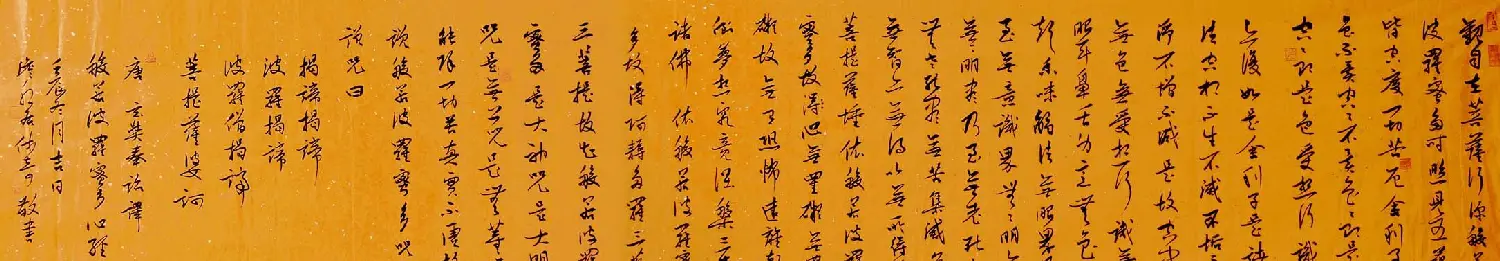 觀自在菩薩行深般若
波羅蜜多時照見五蘊
皆空度一切苦厄舍利子
色不異空空不異色色即是
空空即是色受想行識
亦復如是舍利子是諸
法空相不生不滅不垢不
淨不增不減是故空中
無色無受想行識無
眼耳鼻舌身意無色
聲香味觸法無眼界
乃至無意識界無無明亦
無無明盡乃至無老死
無老死盡無苦集滅
無智亦無得以無所得
菩提薩埵依般若波羅
蜜多故心無罣礙無罣
礙故無有恐怖遠離顛
倒夢想究竟涅槃三世
諸佛依般若波羅蜜
多故得阿耨多羅三藐
三菩提故知般若波羅
蜜多是大神咒是大明
咒是無上咒是無等
能除一切苦真實不虛故
說般若波羅蜜多咒
說咒曰
揭諦揭諦
波羅揭諦
波羅僧揭諦
菩提薩婆訶
唐玄奘奉詔譯
般若波羅蜜多心經
壬辰六月吉日
敬書